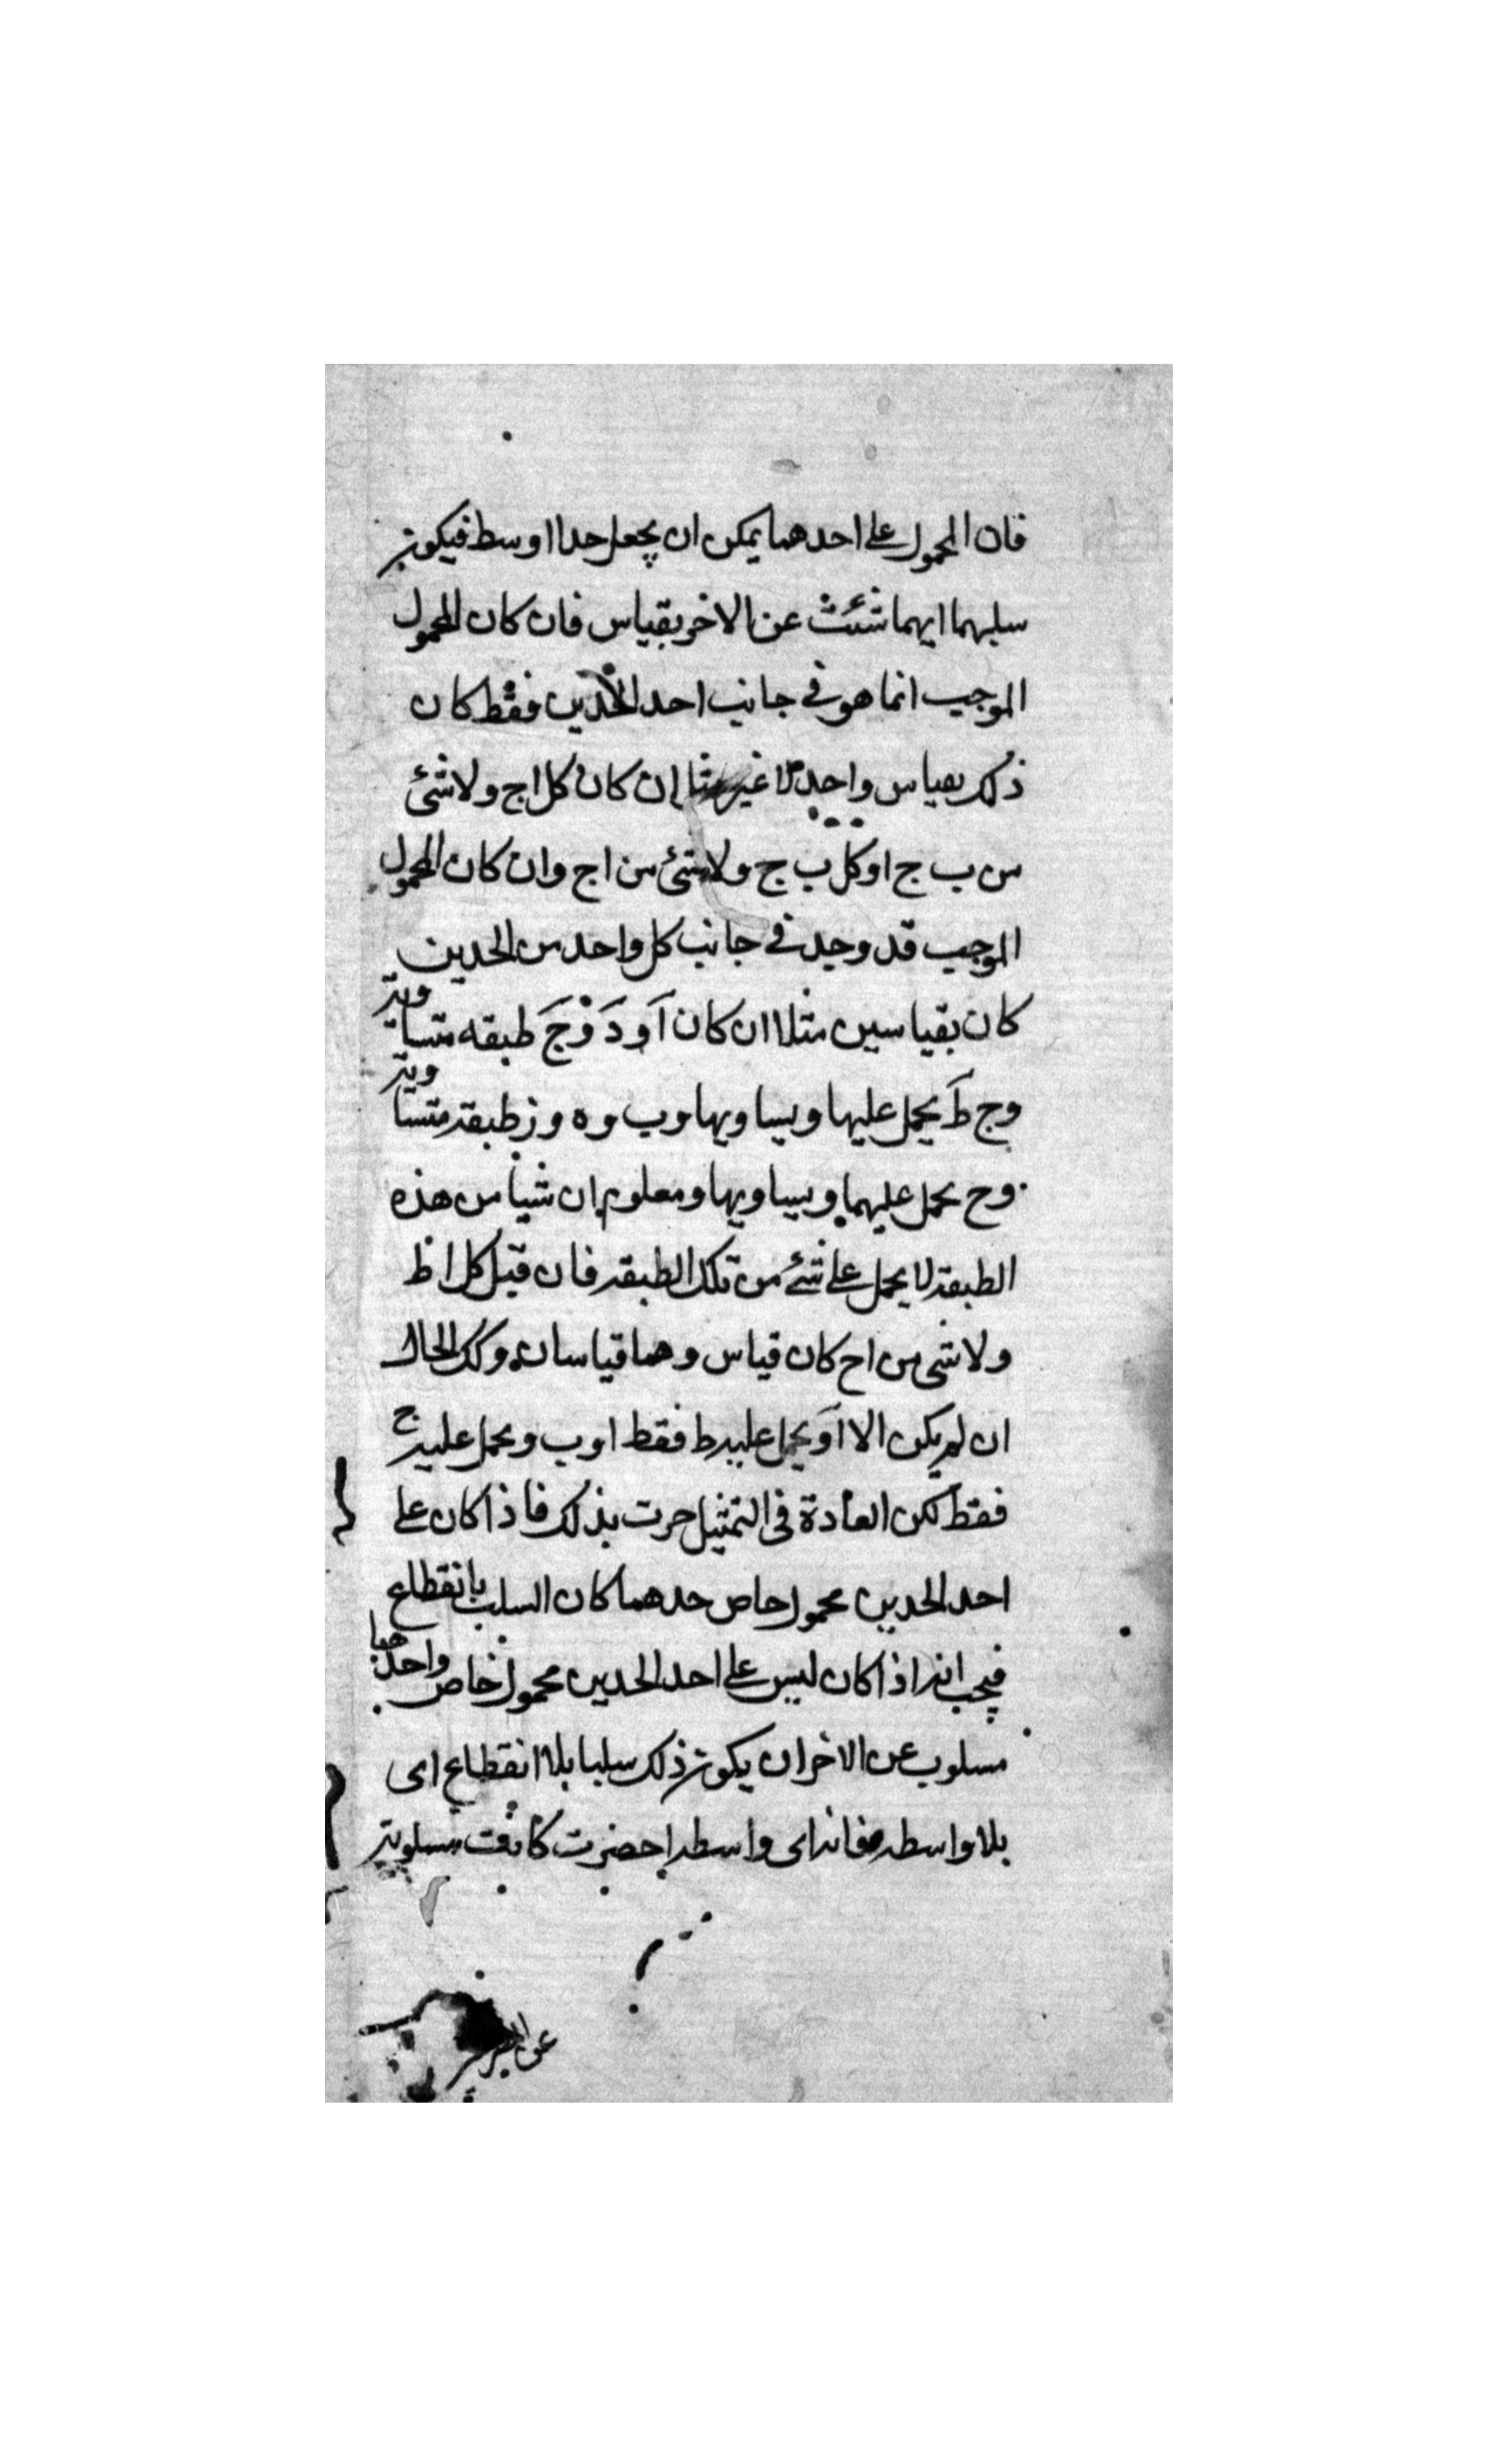 فان المحمول على احدهما يمكن ان يجعل حدا اوسط فيكون
سلبهما ايهما شئت عن الاخر بقياس فان كان المحمول
الموجب انما هو فى جانب احد الحدين فقط كان
ذلك بقياس واحد لا غير مثلا ان كان كل ا ج ولا شئ
من ب ج او كل ب ج ولا شئ من ا ج وان كان المحمول
الموجب قد وجد فى جانب كل واحد من الحدين
كان بقياسين مثلا ان كان آ و دَ وْ جَ طبقه متساوية
و ج طَ يحمل عليها ويساويها و ب و ه و ز طبقة متساوية
و ح يحمل عليهما ويساويها ومعلوم ان شيأ من هذه
الطبقة لا يحمل على شئ من تلك الطبقة فان قيل كل ا ط
ولا شى من ا ح كان قياس وهما قياسان وكك الحال
ان لم يكن الا آ و يحمل عليه ط فقط او ب و يحمل عليه ح
فقط لكن العادة فى التمثيل جرت بذلك فاذا كان على
احد الحدين محمول خاص حدهما كان السلب بانقطاع
فيجب انه اذا كان ليس على احد الحدين محمول خاص واحدهما
مسلوب عن الاخر ان يكون ذلك سلبا بلا انقطاع اى
بلا واسطه فانه اى واسطه احضرت كانت مسلوبة